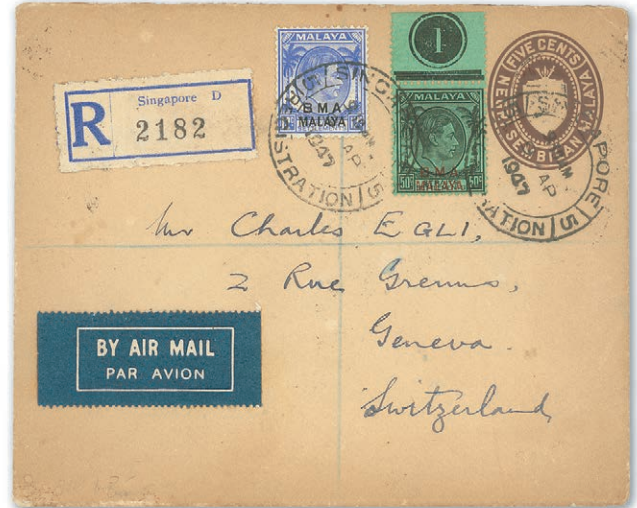 Singapore D
R 2182
MALAYA
B M A
MALAYA
1
MALAYA
B M A
MALAYA
50c 50c
FIVE CENTS
NEGRI SEMBILAN
MALAYA
SINGAPORE
REGISTRATION/5
AP
1947
SINGAPORE
AM
AP
1947
REGISTRATION/5
Mr Charles EGLI,
2 Rue Grenus,
Geneva.
Switzerland
BY AIR MAIL
PAR AVION